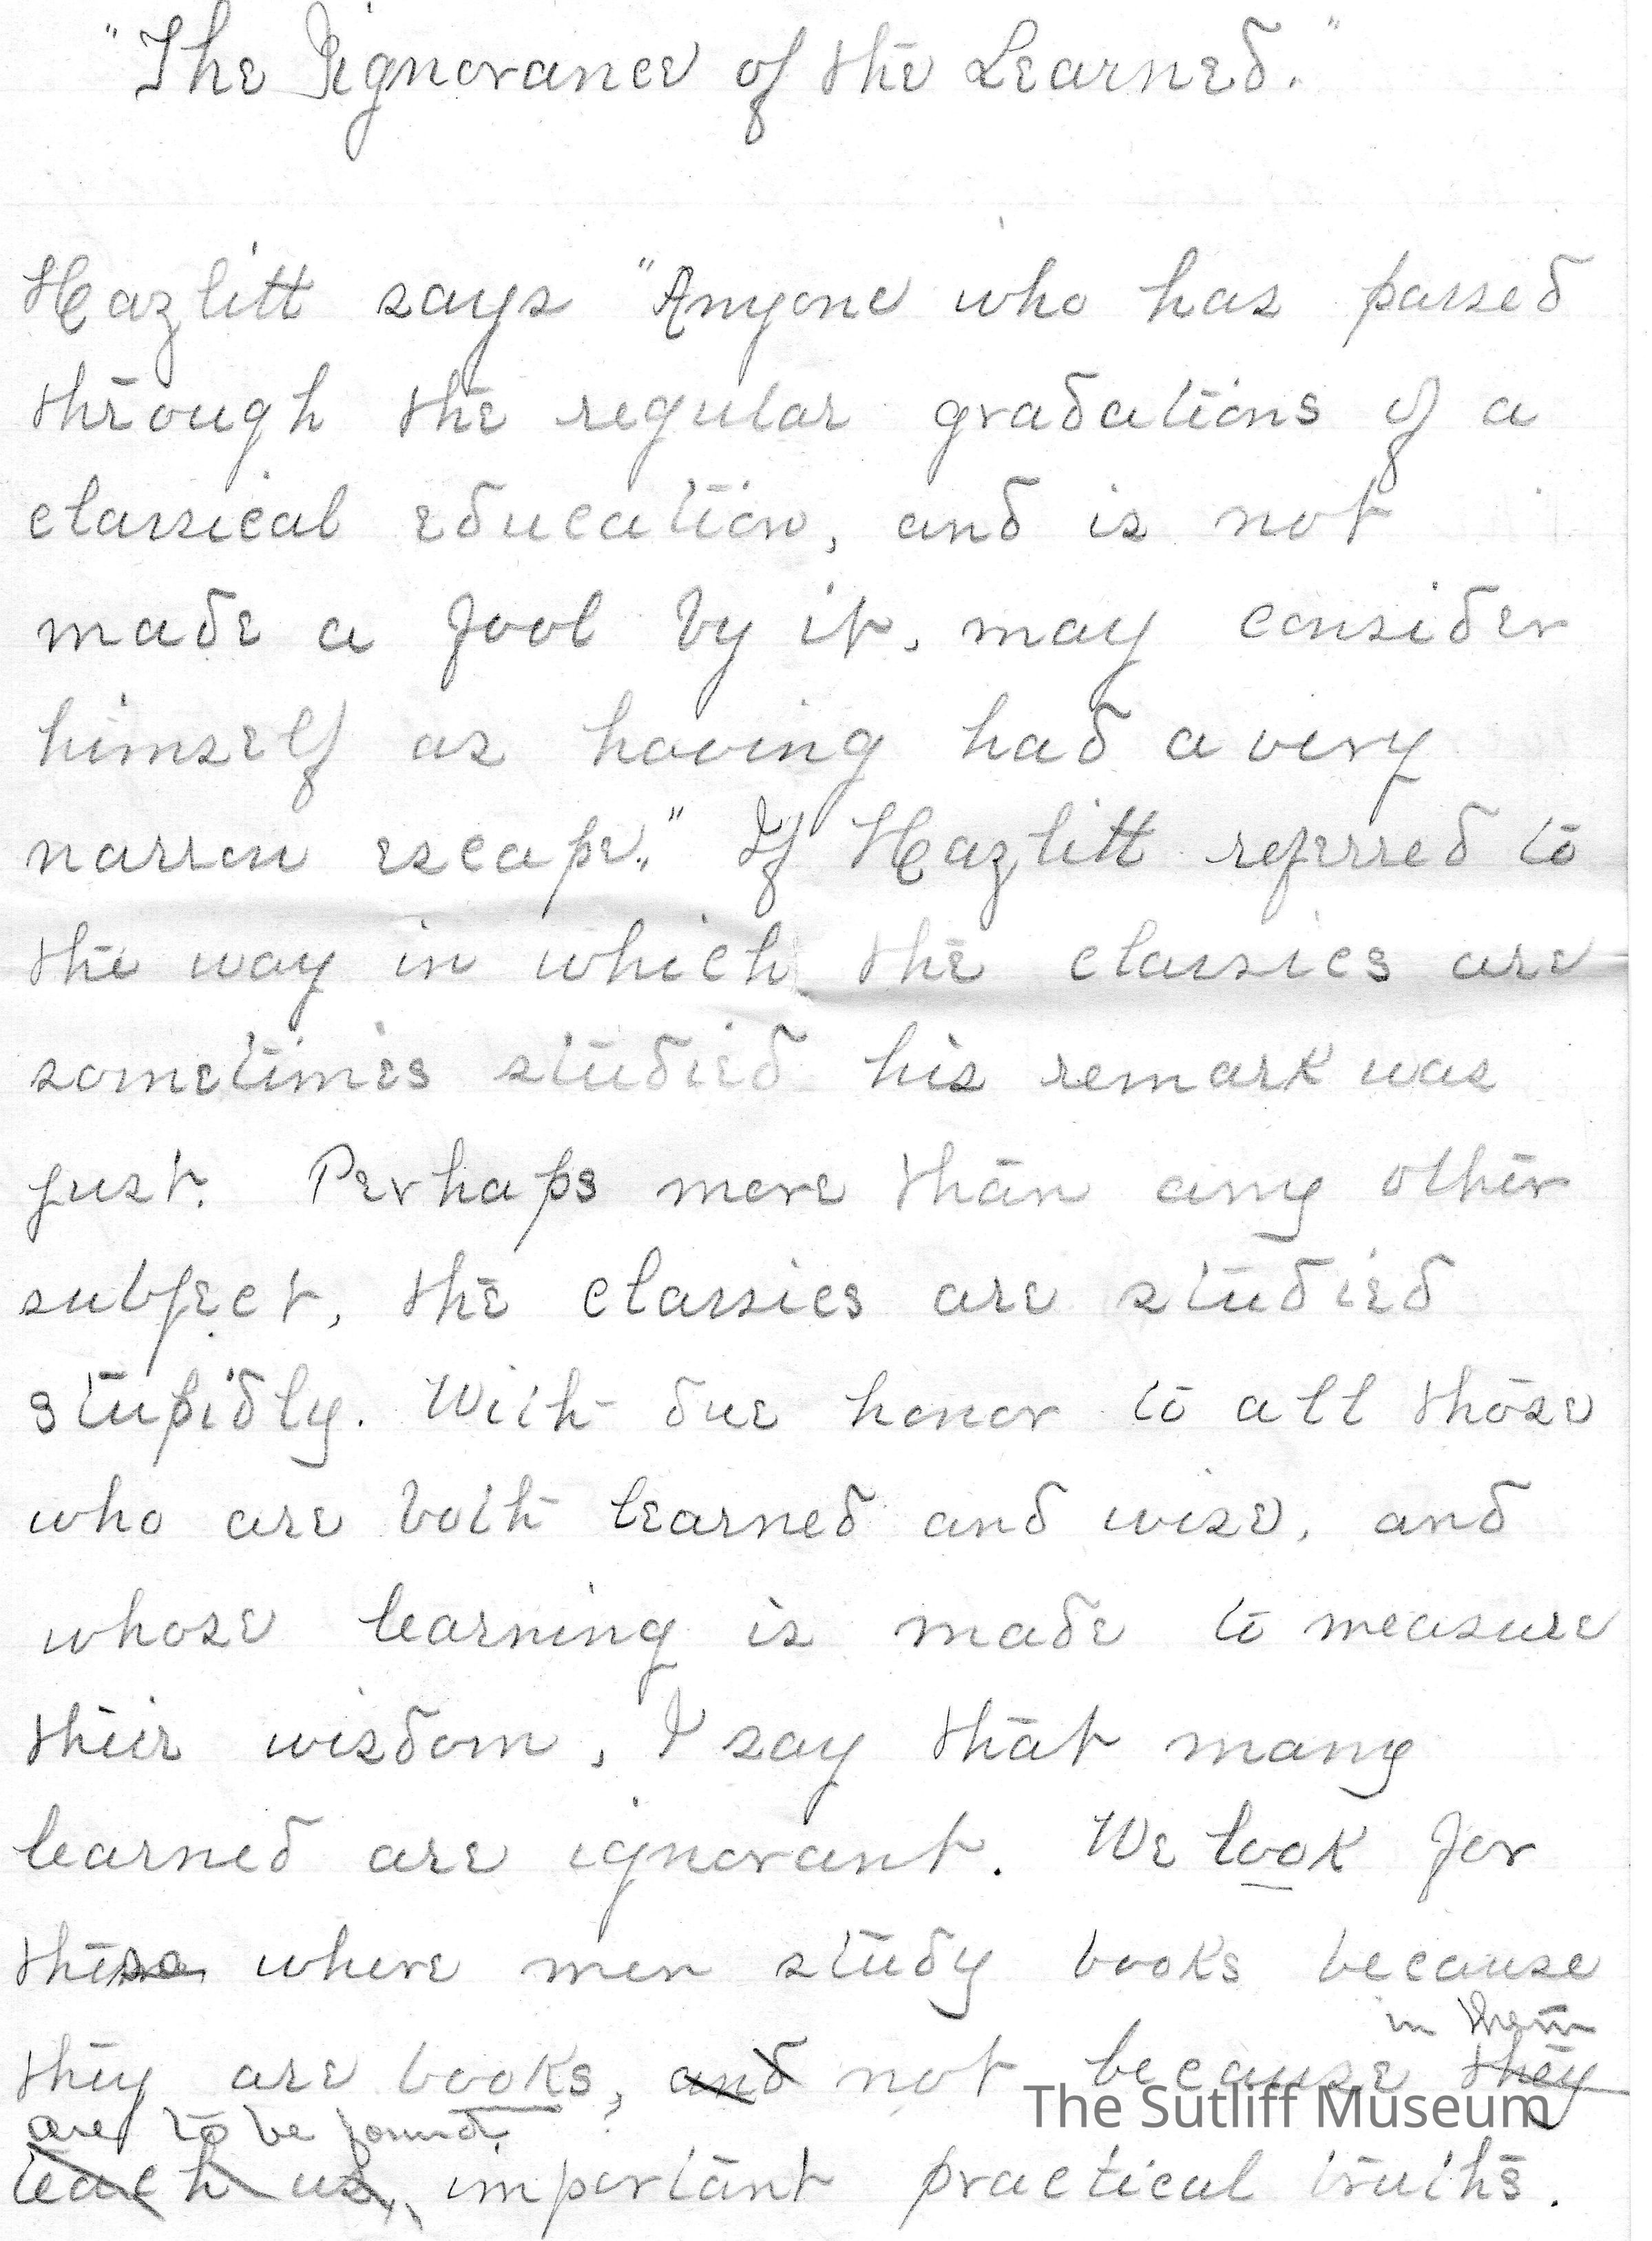 "The Ignorance of the Learned."
Hazlitt says "Anyone who has passed
through the regular gradations of a
classical education, and is not
made a fool by it, may consider
himself as having had a very
narrow escape." If Hazlitt referred to
the way in which the classics are
sometimes studied his remark was
just. Perhaps more than any other
subject, the classics are studied
stupidly. With due honor to all those
who are both learned and wise, and
whose learning is made to measure
their wisdom, I say that many
learned are ignorant. We look for
these where men study books because
in them
they are books, and not because they
are to be found
teach us, important practical truths.
The Sutliff Museum